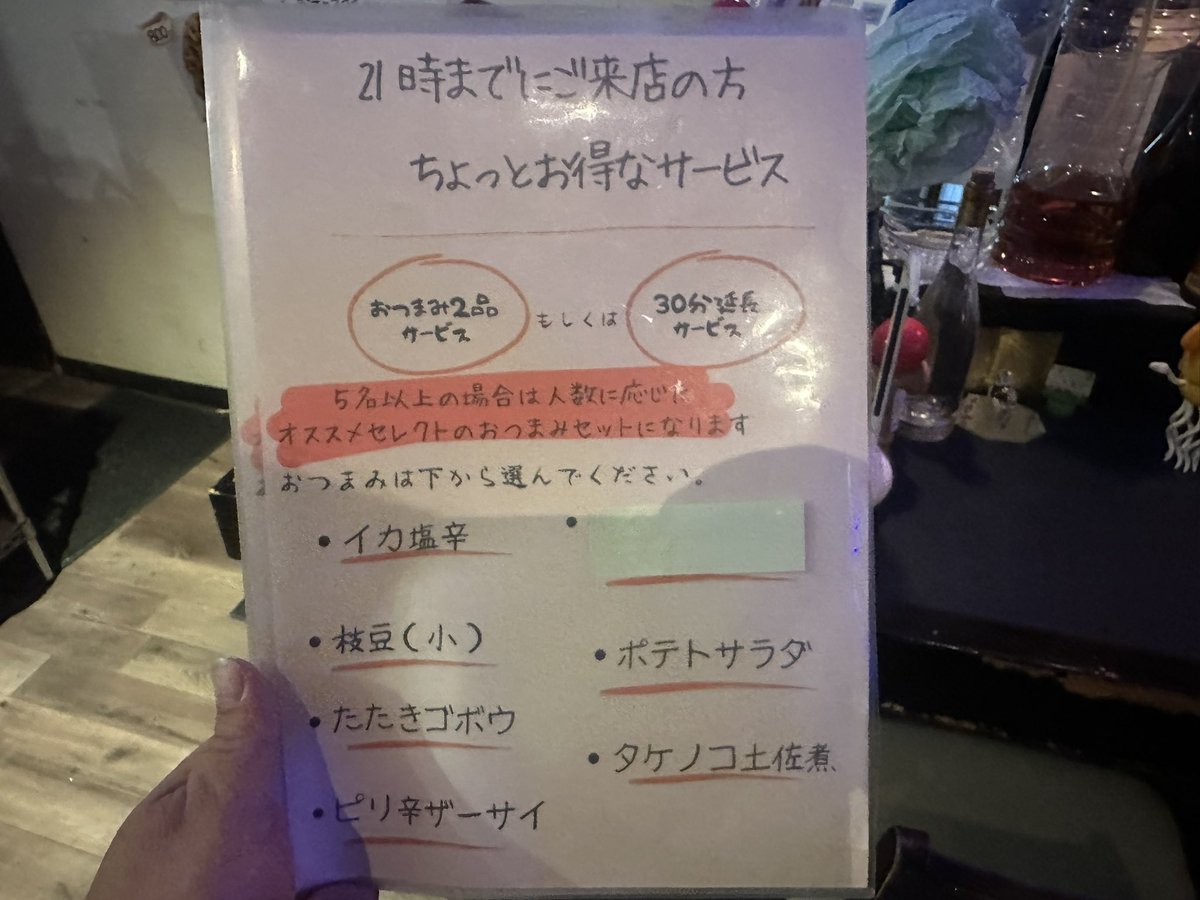 800
21時までにご来店の方
ちょっとお得なサービス
おつまみ2品
サービス
もしくは
30分延長
サービス
5名以上の場合は人数に応じた
オススメセレクトのおつまみセットになります
おつまみは下から選んでください。
• イカ塩辛
•
• 枝豆(小)
• ポテトサラダ
• たたきゴボウ
• タケノコ土佐煮
• ピリ辛ザーサイ